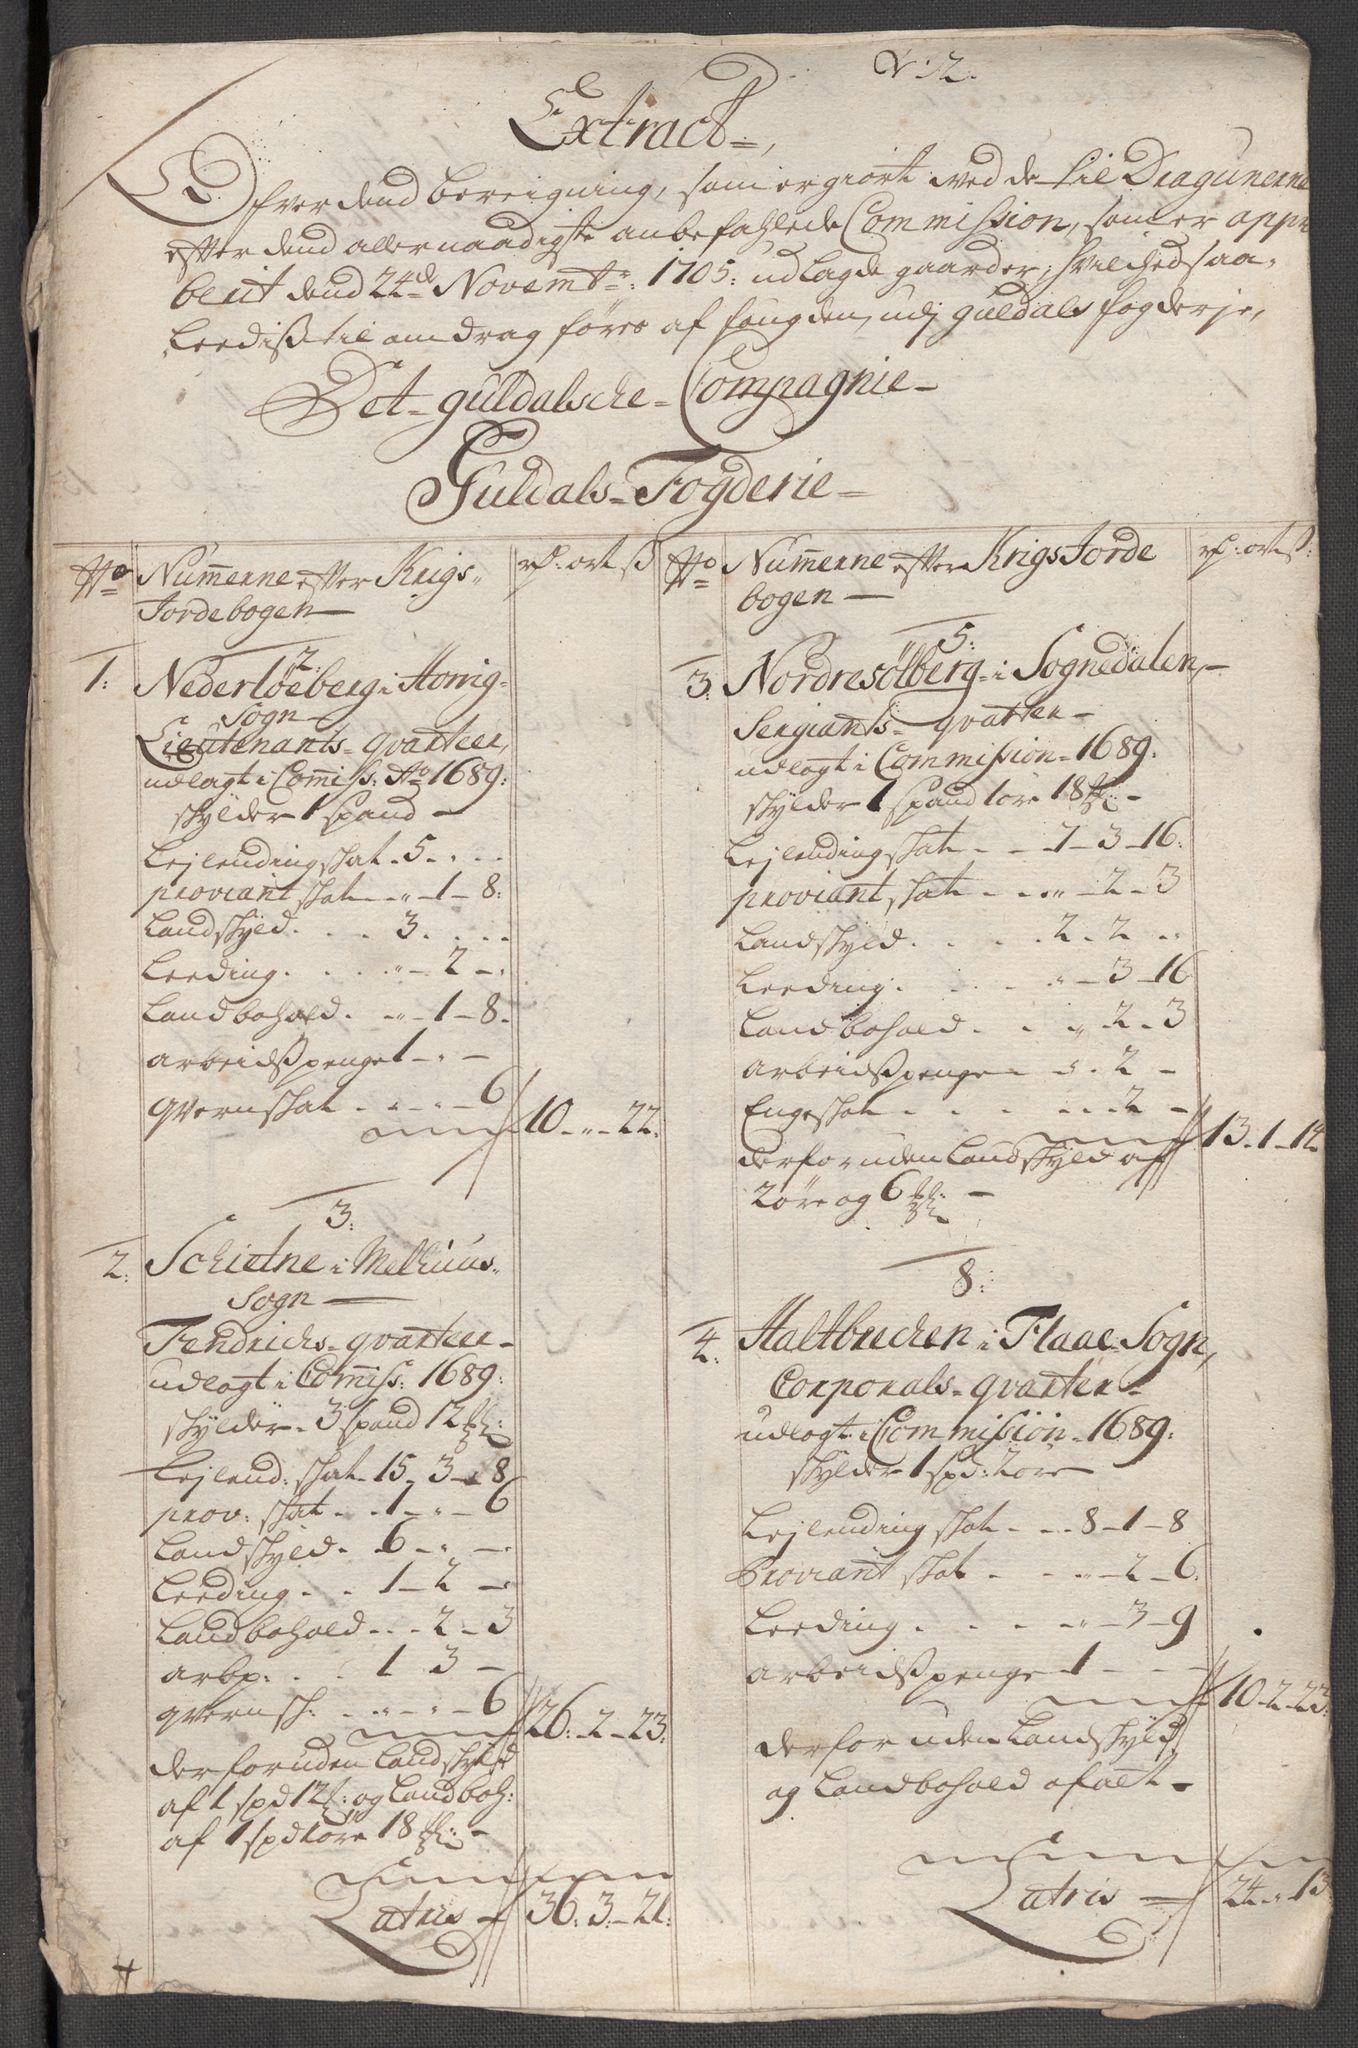 V:12.
Extract
Ofver dend bereigning, som er giort ved de til Dragunerne
efter dend allernaadigste anbefahlede Commission, som er appro
berit dend 24de Novembr: 1705: udlagde gaarder, hvilched saa-
leediss til amdrag føres af fougden, udj Guldals fogderje,
Det Guldalsche Compagnie
Guldals Fogderie
No Numerne efter Krigs
Jordebogen
rd: ort ß
1: 2:
Nederløeberg i Horrig
Sogn
Lieutenants qvarteer,
udlagt i Comiss: Ao 1689:
skylder 1 Spand
Lejlendingschat 5 " "
proviantschat " 1 8:
Landskyld 3 " "
Leeding " 2 "
Landbohold " 1 8
arbeidsspenge 1 " "
qvernschat " " 6
10 " 22
3:
2: Schietne i Melhuus
Sogn
Fendrichs qvarteer
udlagt i Comiss: 1689:
skylder 3 spand 12 mkl:
Lejlend: schat 15 3 8
prov: schat 1 " 6
Landskyld 6 " "
Leeding 1 2 "
Landbohold " 2 3
arbp: 1 3 "
qvernsch: " " 6
26: 2 23:
derforuden Landskyld
af 1 spd 12 mkl: og Landboh:
af 1 spd 1 øre 18 mkl:
Latris 36: 3 21:
No Numerne efter Krigs Jorde
bogen
rd: ort ß:
5:
3: Nordresølberg i Sognedalen,
Sergiants qvarter
udlagt i Commission 1689:
skylder 1 spand 1 øre 18 mkl:
Lejlendingschat 7 3 16:
proviantschat " 2 3
Landskyld 2 2 "
Leeding " 3 16
Landbohold " 2 3
arbeidsspenge " 2 "
Engeschat " 2 "
13 1 14
derforuden Landskyld af
2 øre og 6 mkl:
8:
4: Haltbrecken i Flaae Sogn,
Corporals qvarter
udlagt i Commission 1689:
skylder 1 spd: 2 øre
Lejlendingschat 8 1 8
Proviantschat " 2 6:
Leeding " 3 9
arbeidsspenge 1 " "
10 2 23:
derforuden Landskyld
og Landbohold af alt
Latris 24 " 13